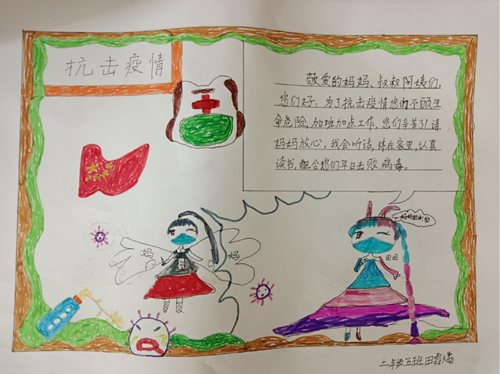 抗击疫情
敬爱的妈妈、叔叔阿姨们,
您们好,为了抗击疫情您们不顾生
命危险,加班加点工作,您们辛苦了!请
妈妈放心,我会听话,待在家里,认真
读书,配合您们早日击败病毒。
妈
妈
田
田
二年级五班田